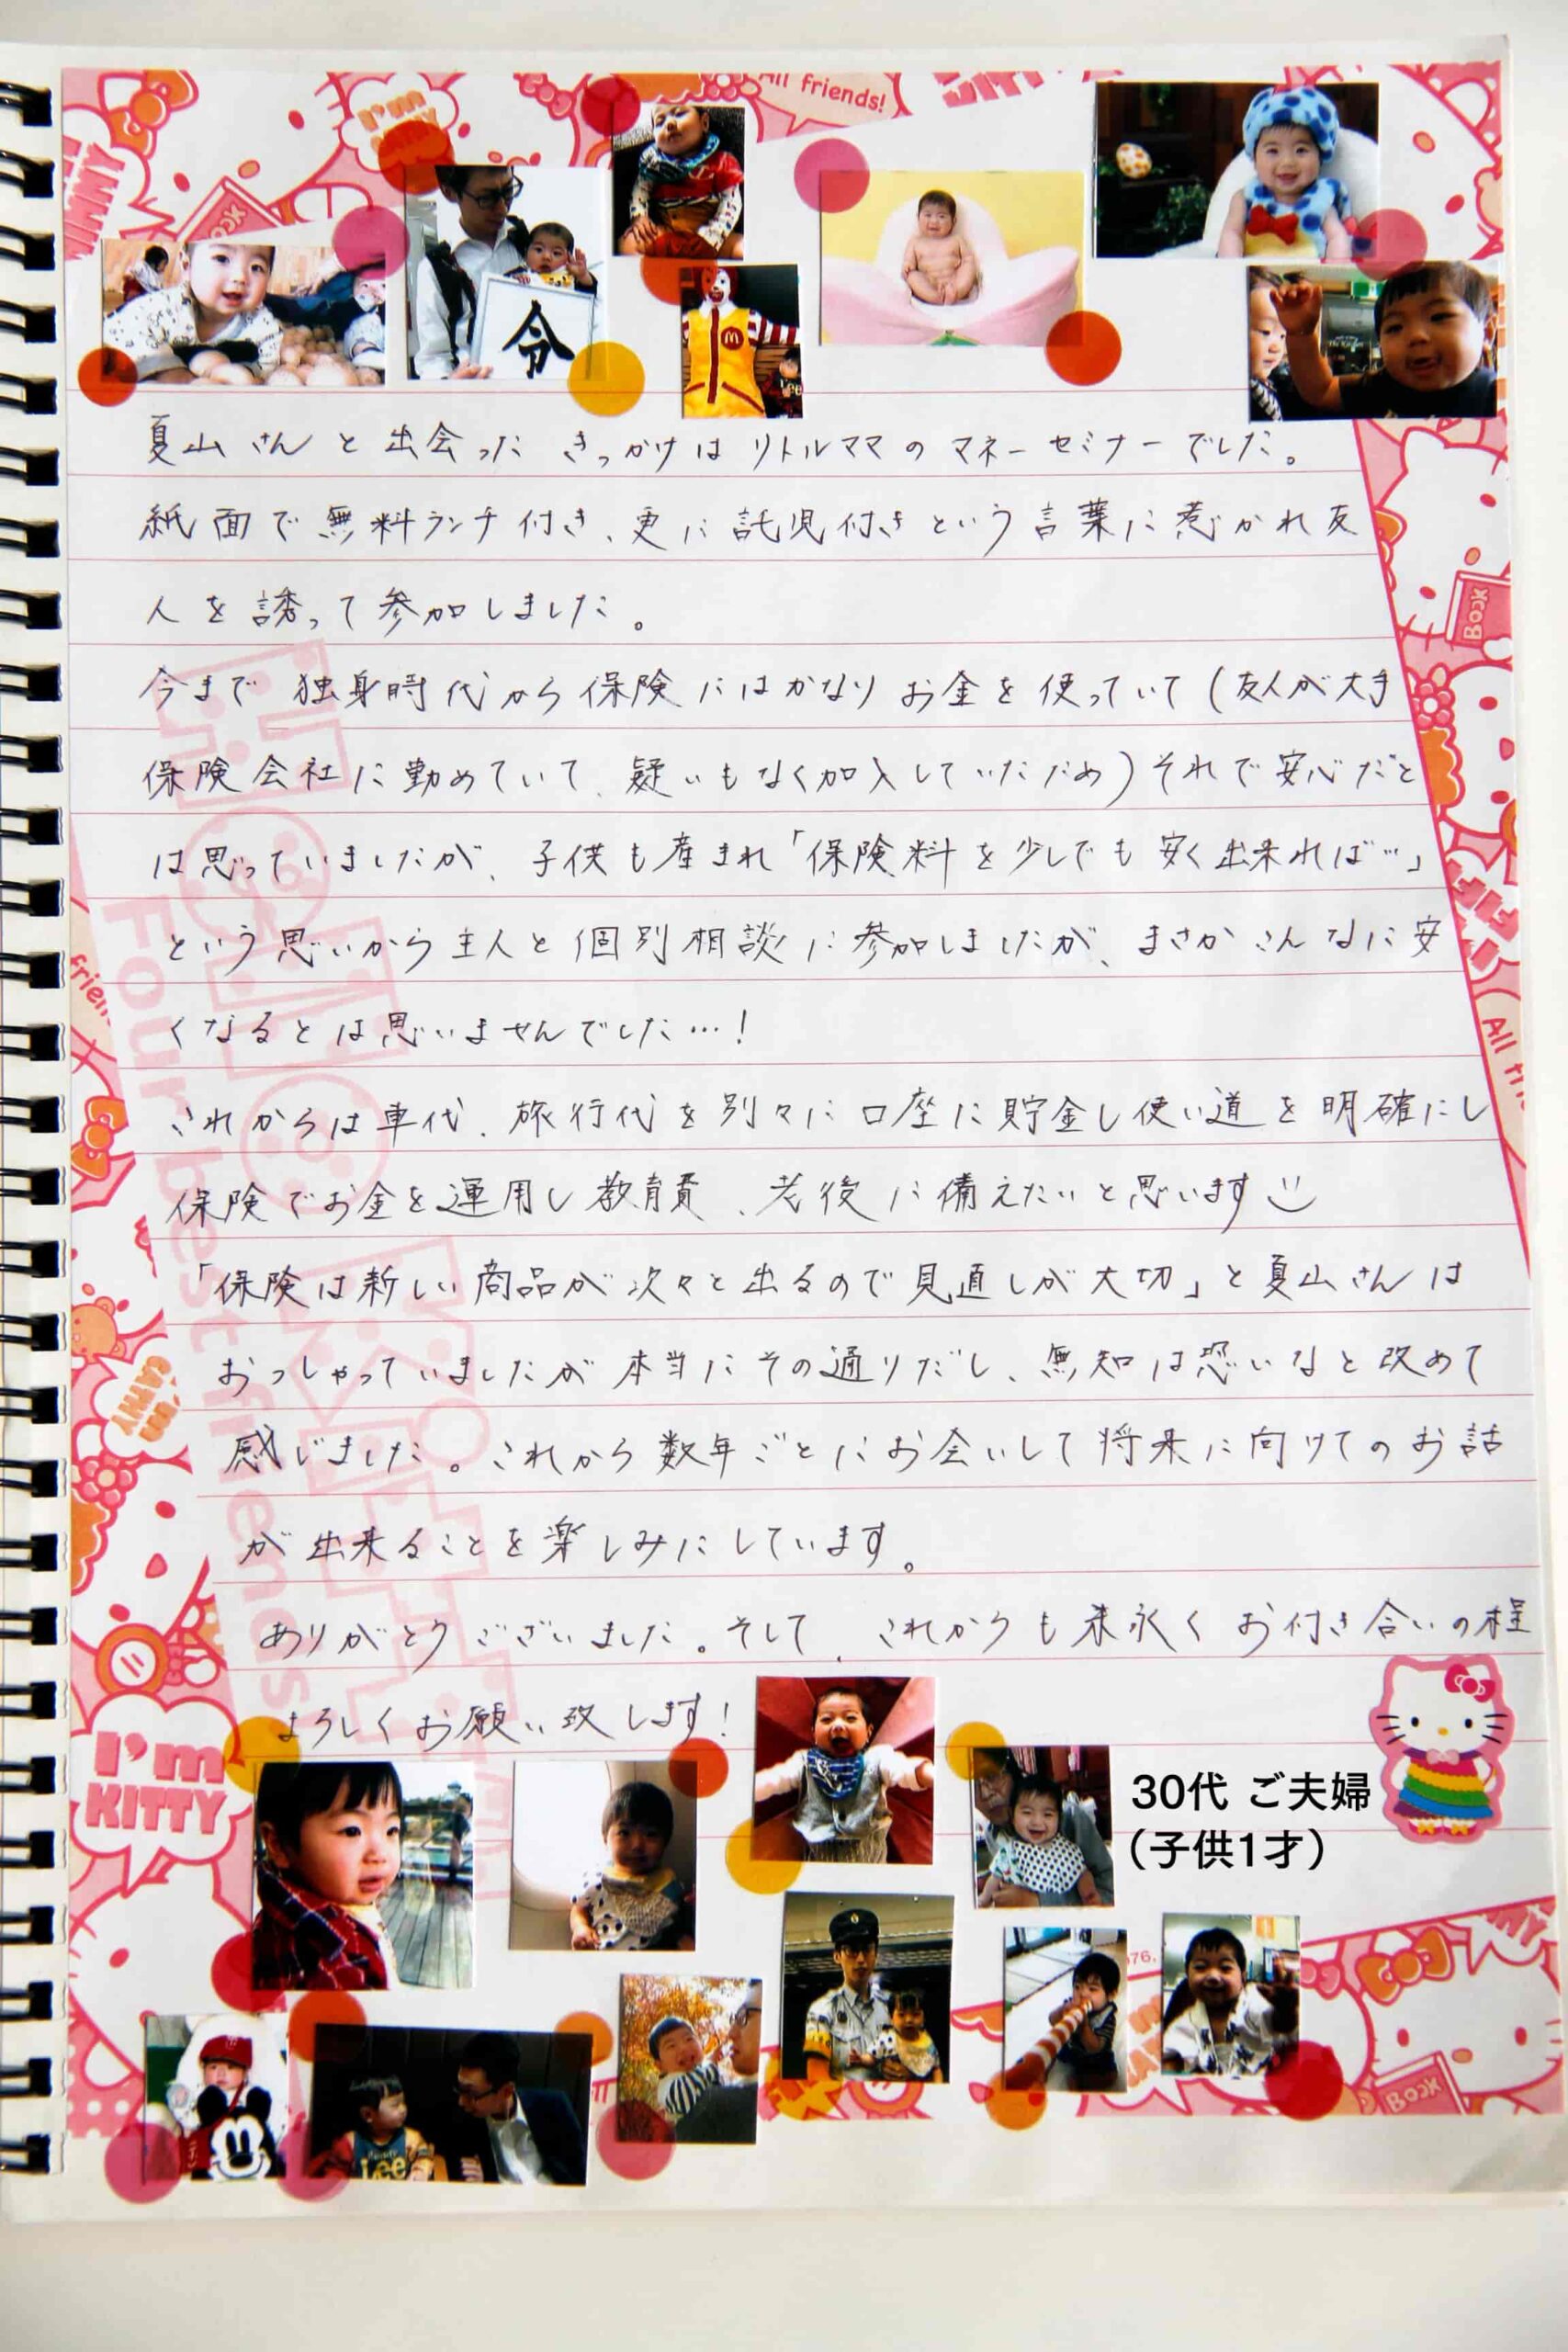 All friends!
I'm
BOOK
令
夏山さんと出会ったきっかけはリトルママのマネーセミナーでした。
紙面で無料ランチ付き、更に託児付きという言葉に惹かれ友
人を誘って参加しました。
今まで独身時代から保険にはかなりお金を使っていて(友人が大手
保険会社に勤めていて、疑いもなく加入していたため)それで安心だと
は思っていましたが、子供も産まれ「保険料を少しでも安く出来れば…」
という思いから主人と個別相談に参加しましたが、まさかこんなに安
くなるとは思いませんでした…!
これからは車代、旅行代を別々に口座に貯金し使い道を明確にし
保険でお金を運用し教育費、老後に備えたいと思います
「保険は新しい商品が次々と出るので見直しが大切」と夏山さんは
おっしゃっていましたが本当にその通りだし、無知は恐いなと改めて
感じました。これから数年ごとにお会いして将来に向けてのお話
が出来ることを楽しみにしています。
ありがとうございました。そして、これからも末永くお付き合いの程
よろしくお願い致します!
HELLO KITTY
Four best friends
BOOK
I'm CATHY
I'm
KITTY
30代 ご夫婦
(子供1才)
Lee
BOOK